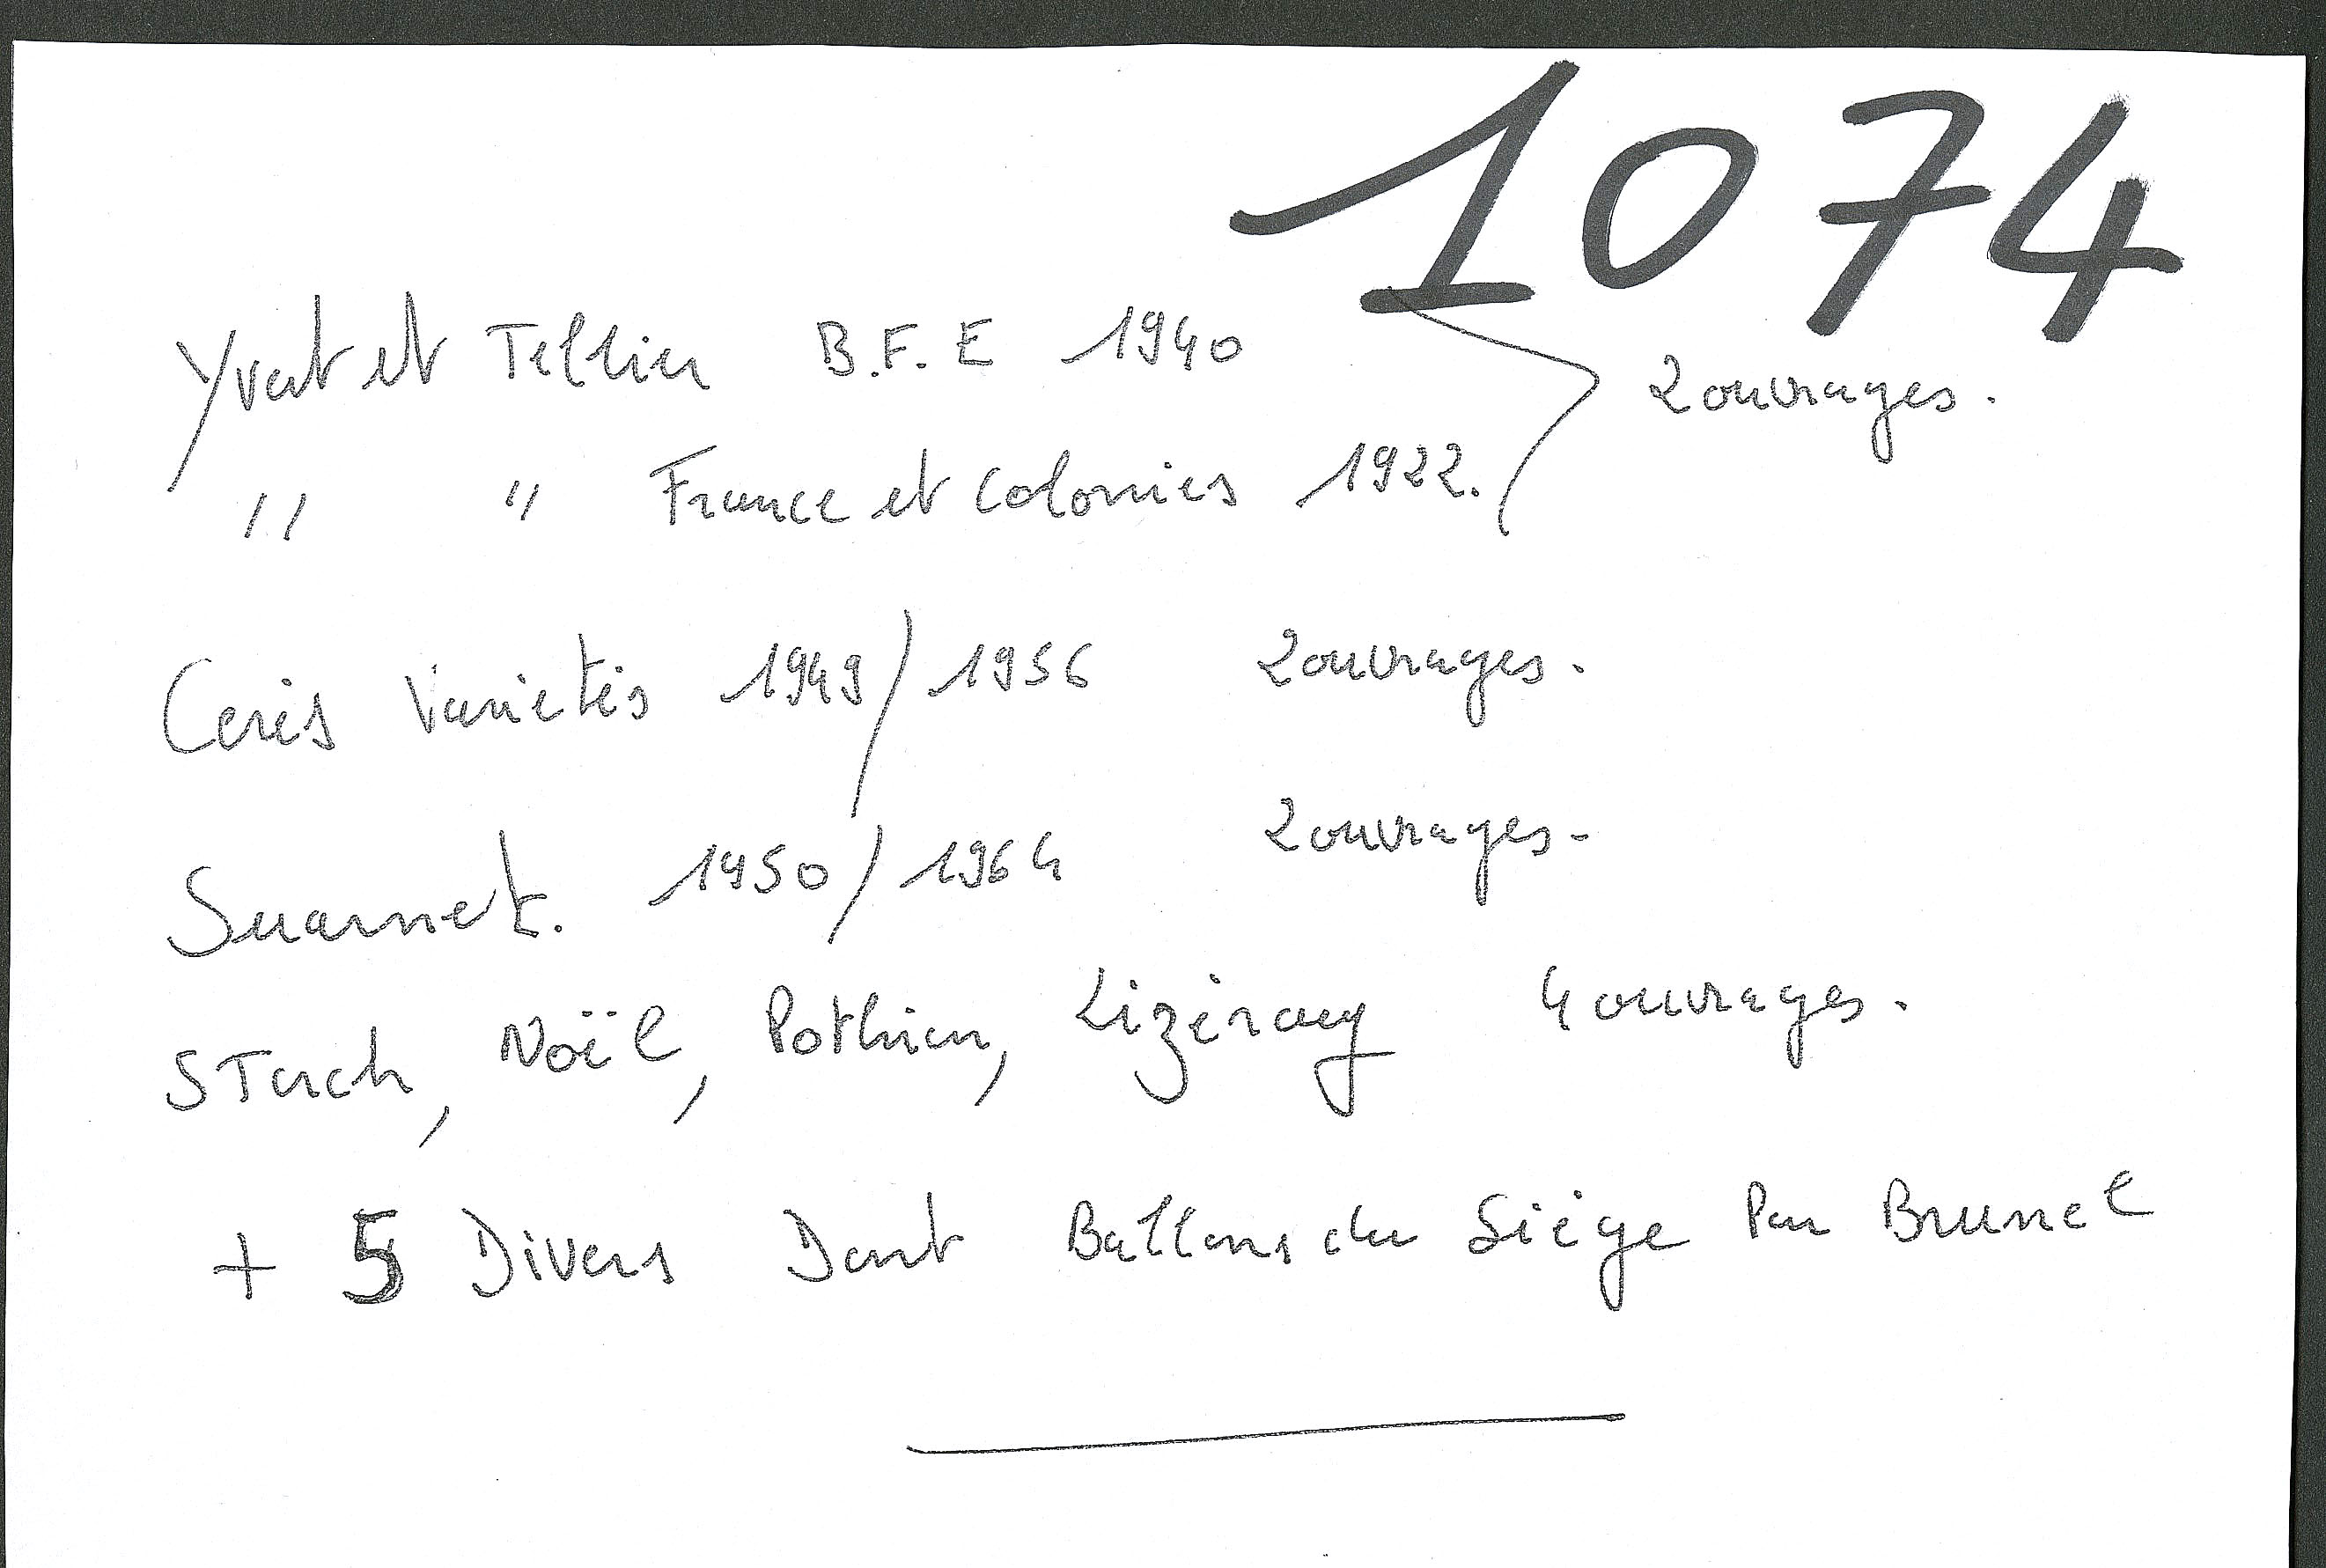 1074
Yvert et Tellier B.F.E 1940
" " France et Colonies 1922. 2 ouvrages.
Cerès Variétés 1949/1956 2 ouvrages.
Suarnet. 1950/1964 2 ouvrages-
STorch, Noël, Pothion, Lizéray 4 ouvrages.
+ 5 Divers Dont Ballons du Siège Par Brunel